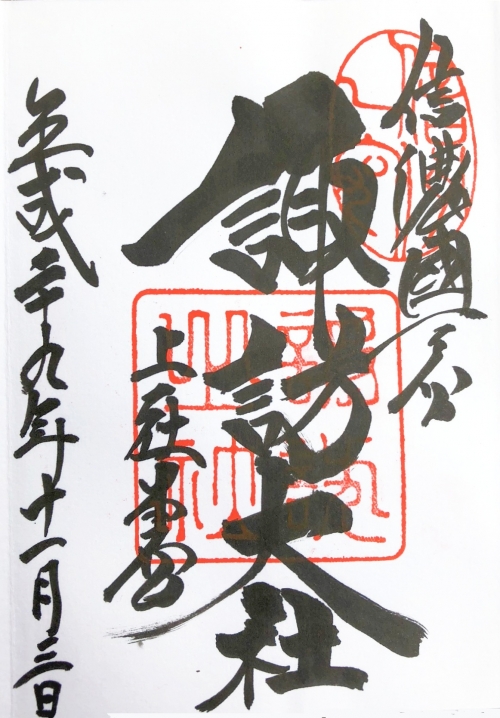 信濃國一之宮
諏訪大社
上社本宮
平成二十九年十一月三日